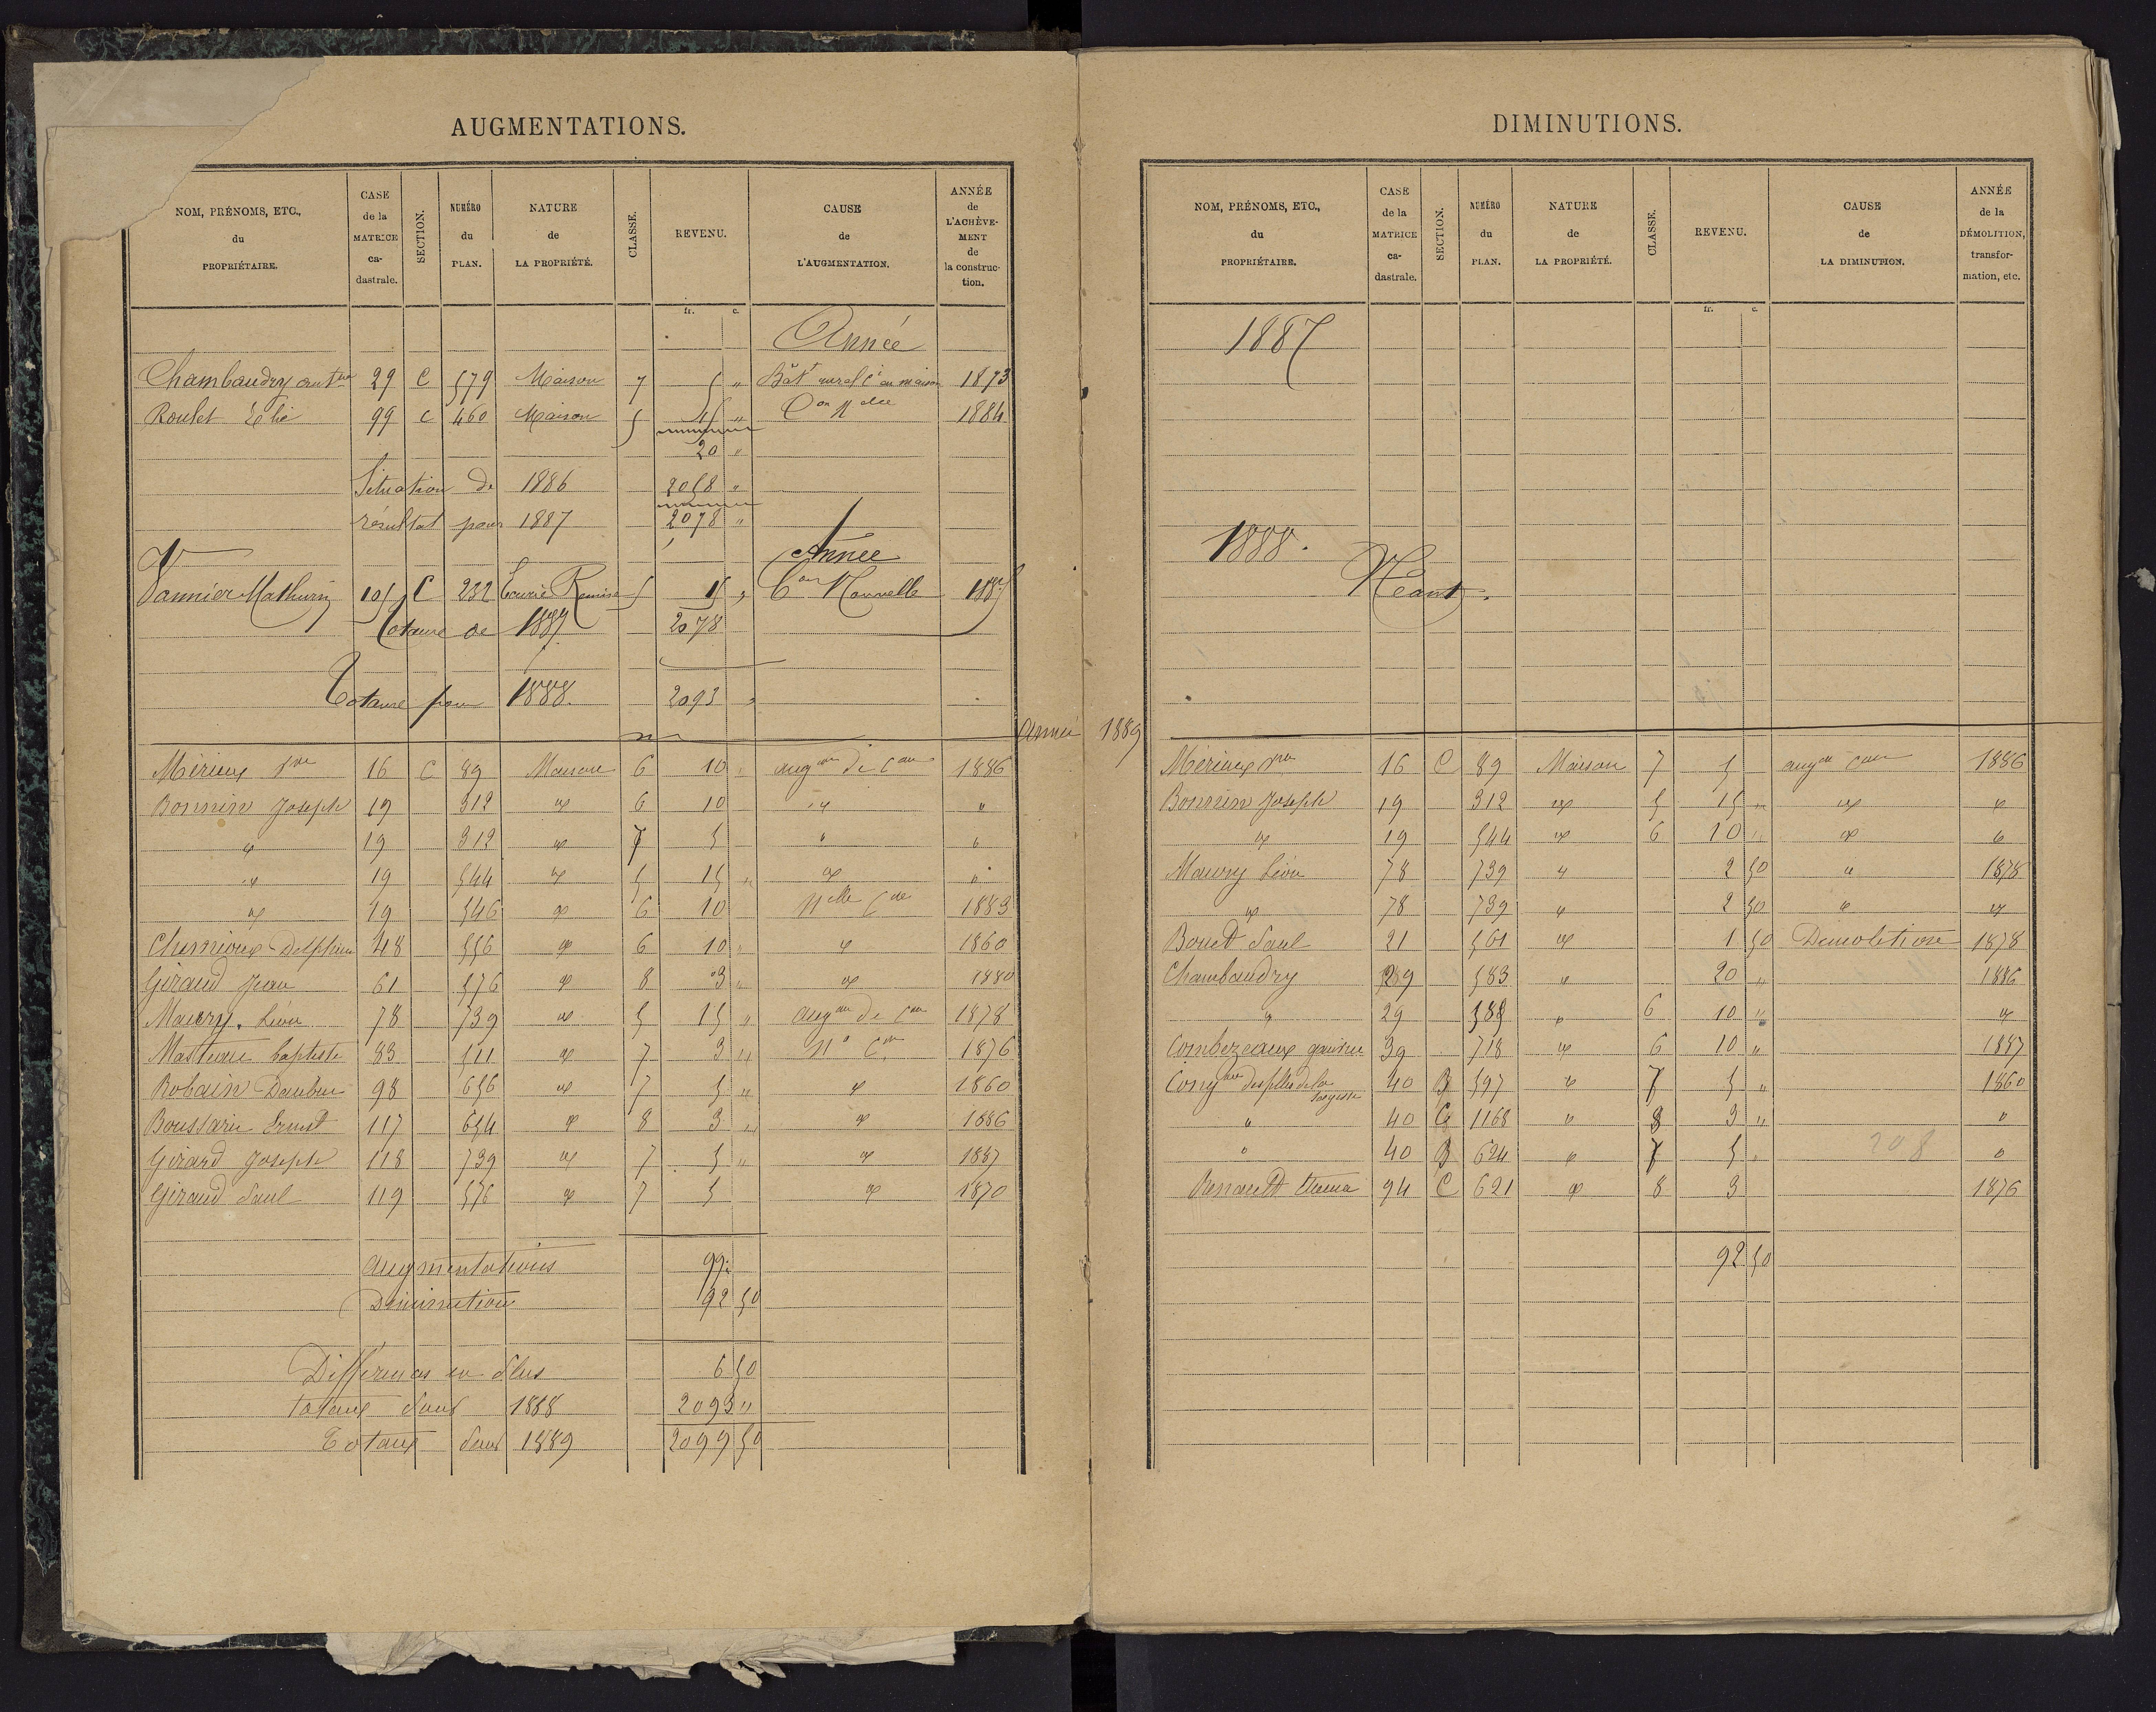 AUGMENTATIONS.
NOM, PRÉNOMS, ETC., du PROPRIÉTAIRE. CASE de la MATRICE ca- dastrale. SECTION. NUMÉRO du PLAN. NATURE de LA PROPRIÉTÉ. CLASSE. REVENU. CAUSE de L'AUGMENTATION. ANNÉE de L'ACHÈVE- MENT de la construc- tion.
fr. c.
Année
Chambaudry 29 C 579 Maison 7 5 " Bât rural en maison 1873
Roulet Elie 99 C 460 Maison 5 15 " Con Nelle 1884
20 "
Situation de 1886 2058 "
résultat pour 1887 2078 "
Année
Vannier Mathurin 105 C 232 Ecurie Remise 5 15 " Con Nouvelle 1885
Totaux de 1887 2078
Totaux pour 1888. 2093 "
Année 1889
Mérieux 16 C 89 Maison 6 10 " augon de Con 1886
Bonnin Joseph 19 312 " 6 10 " "
" 19 312 " 7 5 " "
" 19 544 " 5 15 " " "
" 19 546 " 6 10 Nelle Con 1883
48 556 " 6 10 " " 1860
Giraud Jean 61 576 " 8 3 " " 1880
Maury Léon 78 739 " 5 15 " augon de Con 1878
Masteau Baptiste 83 511 " 7 3 " Nle Con 1876
Robain 98 656 " 7 5 " " 1860
Ernest 117 654 " 8 3 " " 1886
Girard Joseph 118 739 " 7 5 " " 1887
Giraud Paul 119 576 " 7 5 " 1870
Augmentations 99 "
Diminution 92 50
Différences en Plus 6 50
Totaux Pour 1888 2093 "
Totaux Pour 1889 2099 50
DIMINUTIONS.
NOM, PRÉNOMS, ETC., du PROPRIÉTAIRE. CASE de la MATRICE ca- dastrale. SECTION. NUMÉRO du PLAN. NATURE de LA PROPRIÉTÉ. CLASSE. REVENU. CAUSE de LA DIMINUTION. ANNÉE de la DÉMOLITION, transfor- mation, etc.
fr. c.
1887
1888.
Néant.
Mérieux 16 C 89 Maison 7 5 augon Con 1886
Bonnin Joseph 19 312 " 5 15 " " "
" 19 544 " 6 10 " " "
Maury Léon 78 739 " 2 50 " 1878
" 78 739 " 2 50 " "
Bouet Paul 21 561 " 1 50 Démolition 1878
Chambaudry 29 583 " 20 " 1886
" 29 588 " 6 10 " "
Combezeaux 39 718 " 6 10 " 1887
Congon des filles de la Sagesse 40 B 597 " 7 5 " 1860
" 40 G 1168 " 8 3 " "
" 40 B 624 " 7 5 " 208 "
Renault 94 C 621 " 8 3 1876
92 50